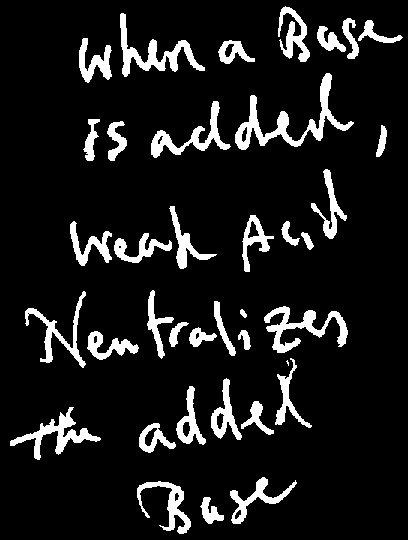 when a Base
is added,
weak Acid
Neutralizes
the added
Base